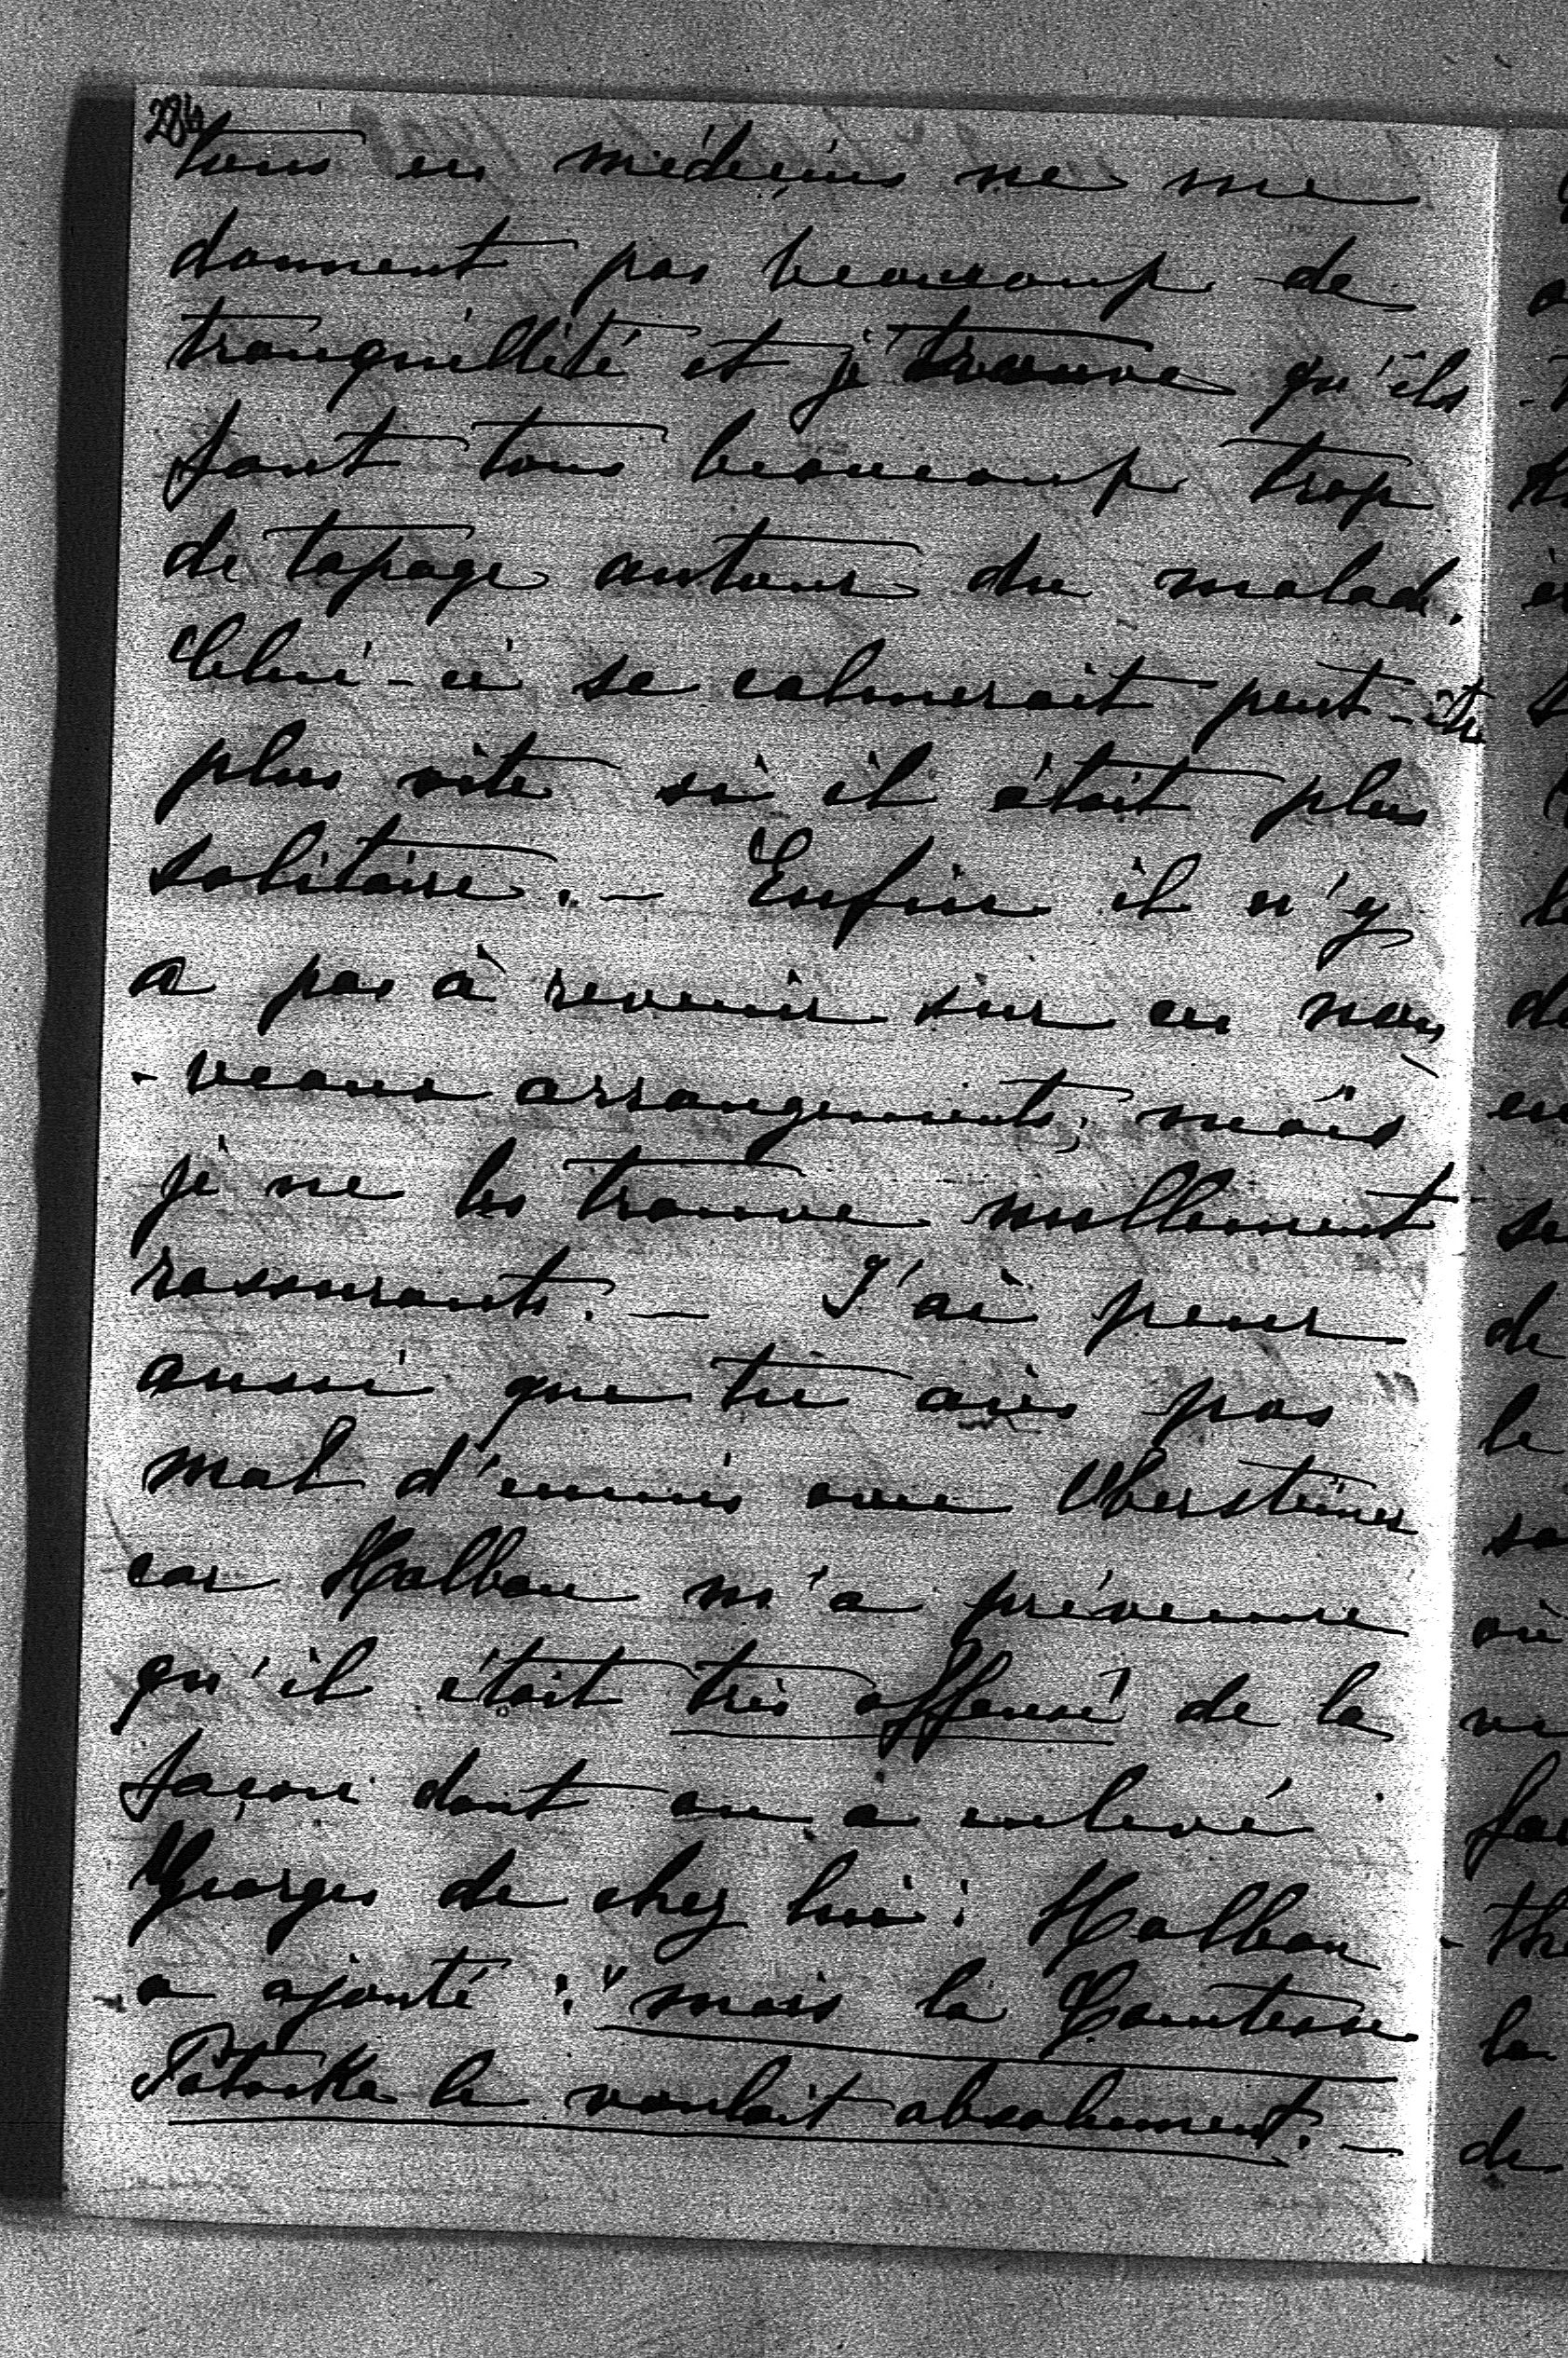 284
tous ces médecins ne me
donnent pas beaucoup de
tranquillité et je trouve qu'ils
font tous beaucoup trop
de tapage autour du malade.
Celui-ci se calmerait peut-être
plus vite si il était plus
solitaire. — Enfin il n'y
a pas à revenir sur ces nou
-veaux arrangements; mais
je ne les trouve nullement
rassurants. — J'ai peur
aussi que tu aies pas
mal d'ennuis avec Obersteiner
car Halban m'a prévenue
qu'il était très offensé de la
façon dont on a enlevé
Georges de chez lui: Halban
a ajouté: "mais la Comtesse
Potocka le voulait absolument. —